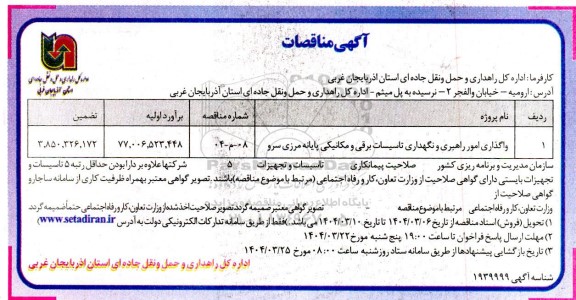 آگهی مناقصات
اداره کل راهداری و حمل و نقل جاده ای
استان آذربایجان غربی
کارفرما: اداره کل راهداری و حمل ونقل جاده ای استان آذربایجان غربی
آدرس: ارومیه – خیابان والفجر ۲ – نرسیده به پل میثم - اداره کل راهداری و حمل ونقل جاده ای استان آذربایجان غربی
ردیف نام پروژه شماره مناقصه برآورد اولیه تضمین
۱ واگذاری امور راهبری و نگهداری تاسیسات برقی و مکانیکی پایانه مرزی سرو ۰۸-م-۰۴ ۷۷,۰۰۶,۵۲۳,۴۴۸ ۳,۸۵۰,۳۲۶,۱۷۲
شرکتها علاوه بر دارا بودن حداقل رتبه ۵ تاسیسات و تجهیزات صلاحیت پیمانکاری سازمان مدیریت و برنامه ریزی کشور
تجهیزات بایستی دارای گواهی صلاحیت از وزارت تعاون، کار و رفاه اجتماعی (مرتبط با موضوع مناقصه) باشند. تصویر گواهی معتبر بهمراه ظرفیت کاری از سامانه ساجار و گواهی صلاحیت از
وزارت تعاون، کار و رفاه اجتماعی مرتبط با موضوع مناقصه تصویر گواهی معتبر ضمیمه گردد. تصویر صلاحیت اخذ شده از وزارت تعاون، کار و رفاه اجتماعی حتما ضمیمه گردد
۱) تحویل (فروش) اسناد مناقصه از تاریخ ۱۴۰۴/۰۳/۰۶ تا تاریخ ۱۴۰۴/۰۳/۱۰ می باشد. (فقط از طریق سامانه تدارکات الکترونیکی دولت به آدرس www.setadiran.ir)
۲) مهلت ارسال پاسخ فراخوان تا ساعت ۱۹:۰۰ پنج شنبه مورخ ۱۴۰۴/۰۳/۲۲
۳) تاریخ بازگشایی پیشنهادها از طریق سامانه ستاد روز شنبه ساعت ۰۸:۰۰ مورخ ۱۴۰۴/۰۳/۲۵
اداره کل راهداری و حمل ونقل جاده ای استان آذربایجان غربی
شناسه آگهی ۱۹۳۹۹۹۹